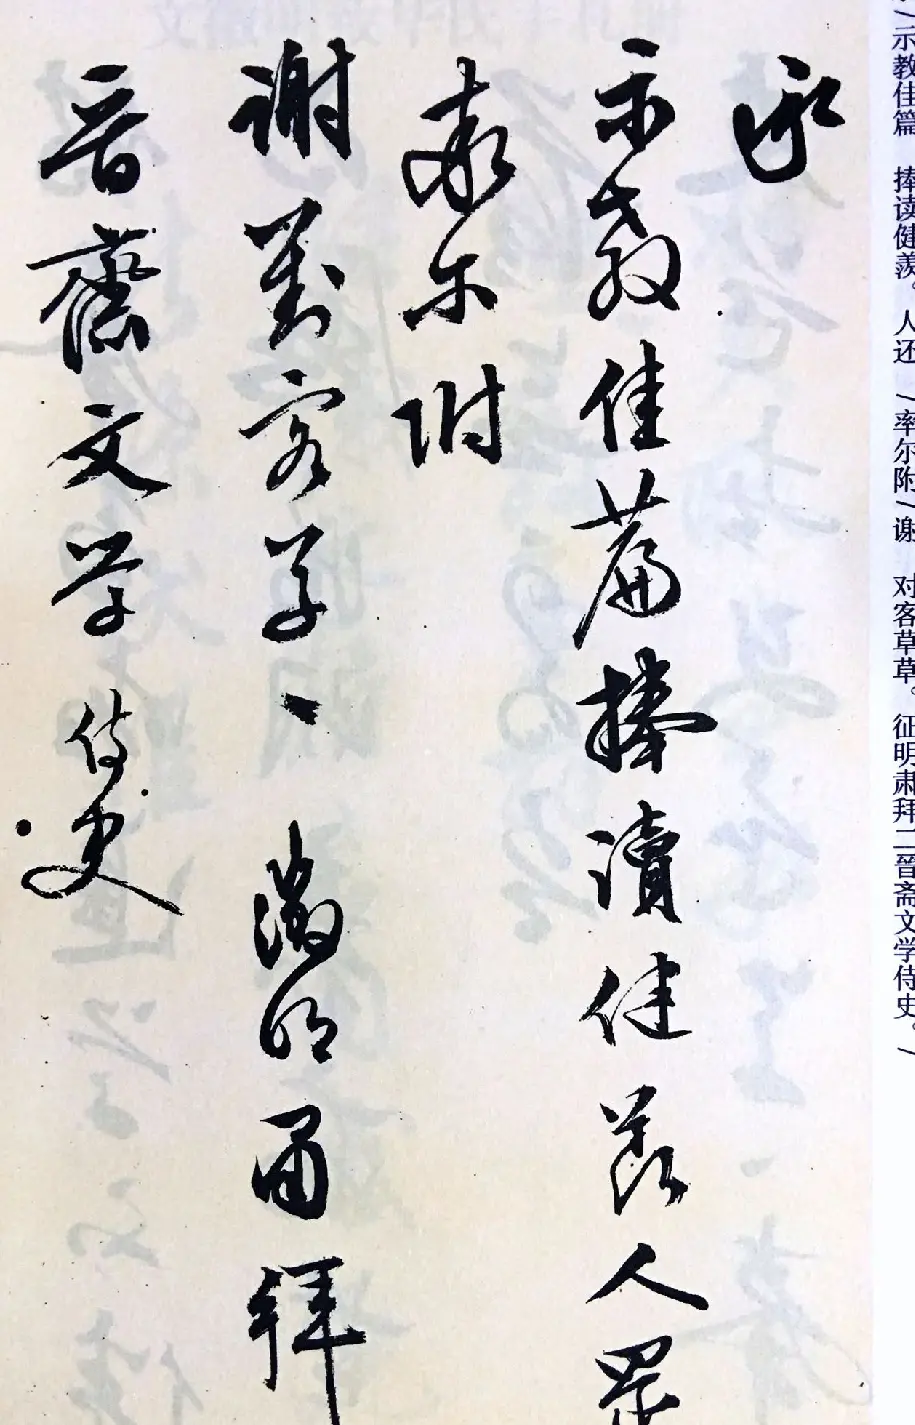 承
示教佳篇捧讀健羨人還
率尔附
謝對客草草徵明肅拜
晉齋文學侍史
/示教佳篇 捧读健羡。人还 /率尔附/谢 对客草草。征明肃拜二晋斋文学侍史。/